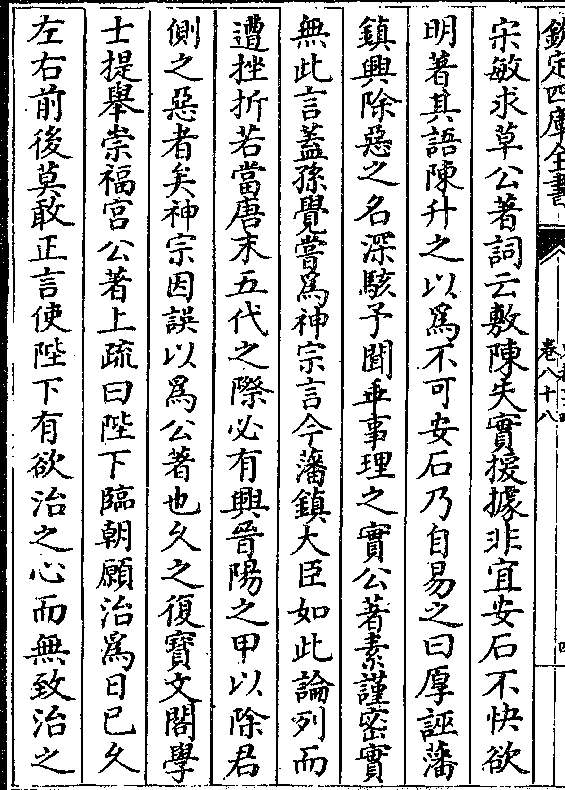 欽定四庫全書
卷八十八
宋敏求草公著詞云敷陳失實援據非宜安石不快欲
明著其語陳升之以為不可安石乃自易之曰厚誣藩
鎮興除惡之名深駭予聞乖事理之實公著素謹密實
無此言蓋孫覺嘗為神宗言今藩鎮大臣如此論列而
遭挫折若當唐末五代之際必有興晉陽之甲以除君
側之惡者矣神宗因誤以為公著也久之復寶文閣學
士提舉崇福宮公著上疏曰陛下臨朝願治為日已久
左右前後莫敢正言使陛下有欲治之心而無致治之